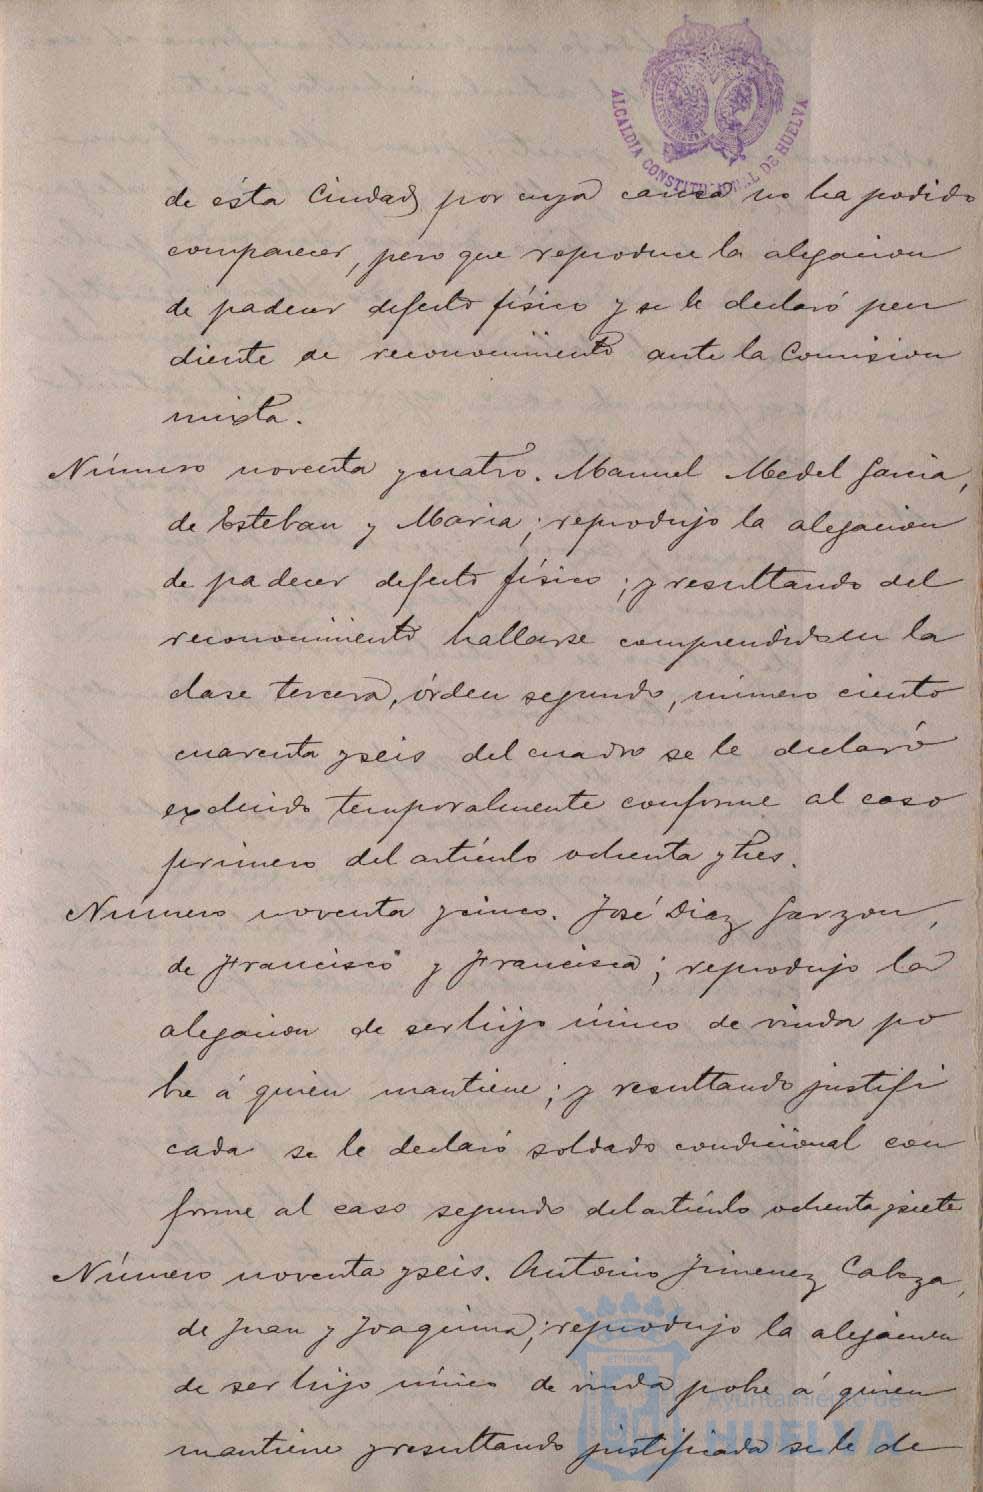 ALCALDIA CONSTITUCIONAL DE HUELVA
de ésta Ciudad por cuya causa no ha podido
comparecer, pero que reproduce la alegacion
de padecer defecto físico y se le declaró pen
diente de reconocimiento ante la Comision
mixta.
Número noventa y cuatro. Manuel Medel Garcia,
de Esteban y Maria; reprodujo la alegacion
de padecer defecto físico; y resultando del
reconocimiento hallarse comprendido en la
clase tercera, órden segundo, número ciento
cuarenta y seis del cuadro se le declaró
excluido temporalmente conforme al caso
primero del artículo ochenta y tres.
Número noventa y cinco. José Diaz Garzon,
de Francisco y Francisca; reprodujo la
alegacion de ser hijo único de viuda po
bre á quien mantiene; y resultando justifi
cada se le declaró soldado condicional con
forme al caso segundo del artículo ochenta y siete
Número noventa y seis. Antonio Jimenez Cabeza,
de Juan y Joaquina; reprodujo la alegacion
de ser hijo único de viuda pobre á quien
mantiene y resultando justificada se le de
Ayuntamiento de
HUELVA